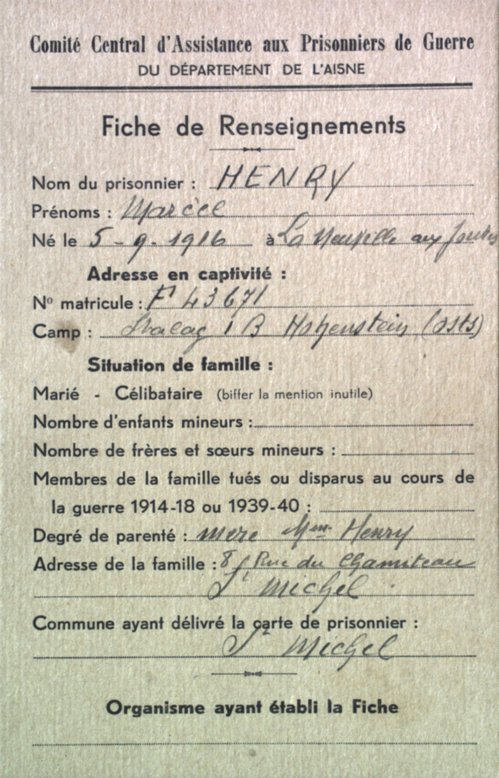 Comité Central d'Assistance aux Prisonniers de Guerre
DU DÉPARTEMENT DE L'AISNE
Fiche de Renseignements
Nom du prisonnier : HENRY
Prénoms : Marcel
Né le 5-9-1916 à La Neuville aux Joutes
Adresse en captivité :
No matricule : F 43671
Camp : Stalag 1 B Hohenstein (
Situation de famille :
Marié - Célibataire (biffer la mention inutile)
Nombre d'enfants mineurs :
Nombre de frères et sœurs mineurs :
Membres de la famille tués ou disparus au cours de
la guerre 1914-18 ou 1939-40 :
Degré de parenté : mere Mme Henry
Adresse de la famille : 8 Rue du Chamiteau
St Michel
Commune ayant délivré la carte de prisonnier :
St Michel
Organisme ayant établi la Fiche